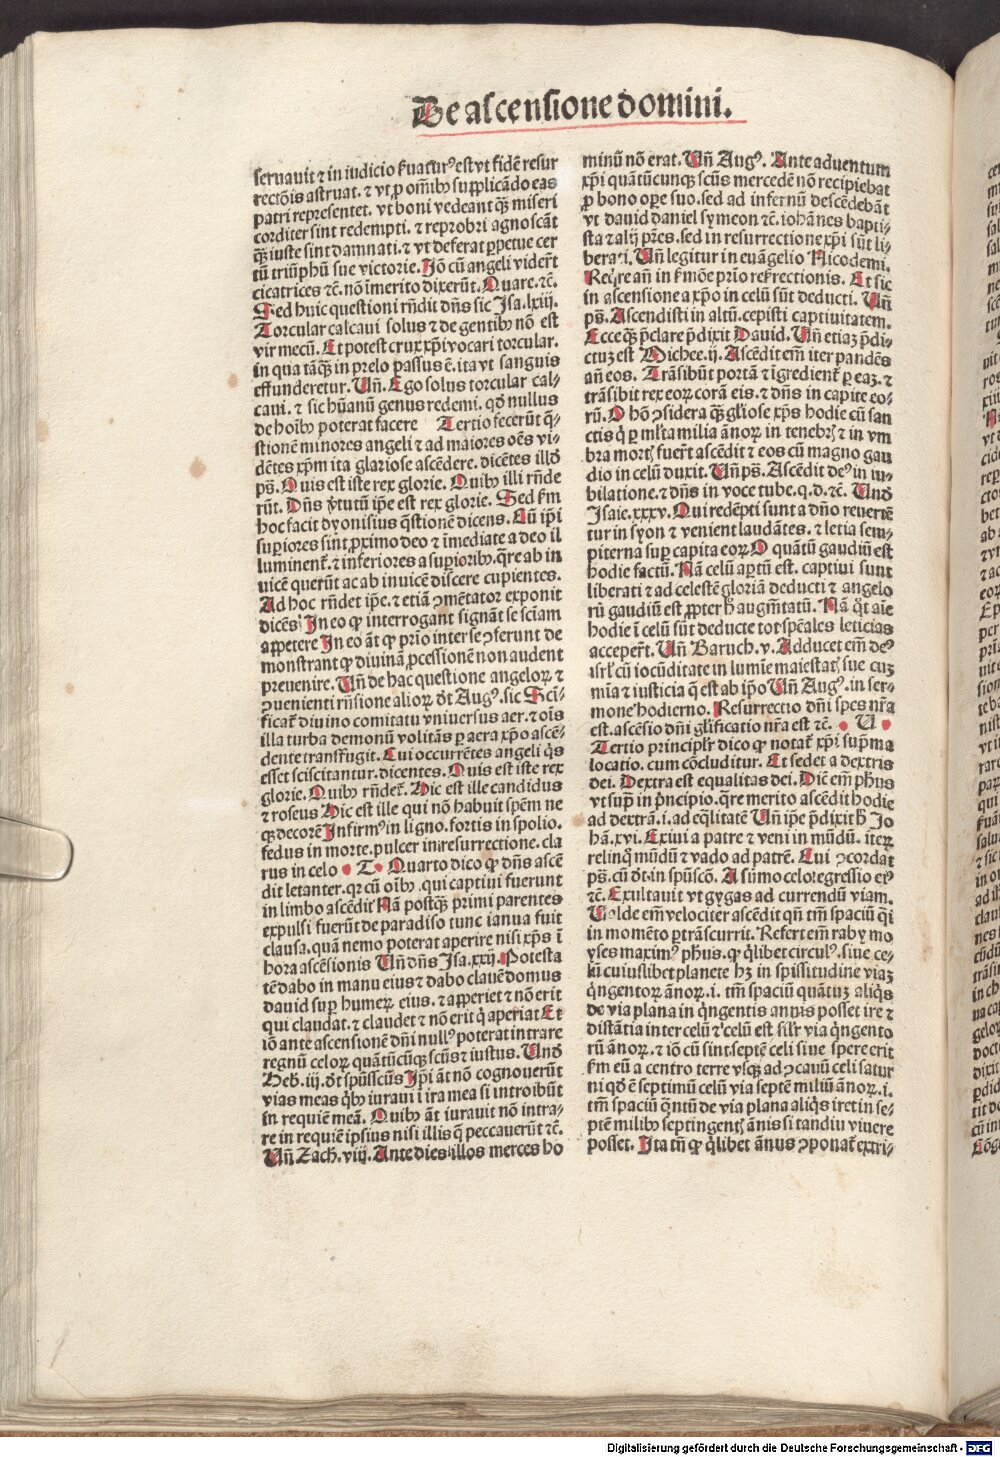 De ascensione domini.
seruauit ⁊ in iudicio ẜuatur⁹ est vt fidē resur
rectōis astruat. ⁊ vt ꝓ om̄ibꝫ supplicādo eas
patri representet. vt boni vedeant qͣꝫ miseri
corditer sint redempti. ⁊ reprobri agnoscāt
qͣꝫ iuste sint damnati. ⁊ vt deferat ꝑpetue cer
tū triūphū sue victorie. Iō cū angeli viderūt
cicatrices ⁊c. nō īmerito dixerūt. Quare. ⁊c.
Sed huic questioni rn̄dit dn̄s sic Isa. lxiij.
Torcular calcaui solus ⁊ de gentibꝫ nō est
vir mecū. Et potest crux xp̄i vocari torcular.
in qua tāqͣꝫ in prelo passus ē. ita vt sanguis
effunderetur. Vn̄. Ego solus torcular cal⸗
caui. ⁊ sic hūanū genus redemi. qđ nullus
de hoībꝫ poterat facere Tertio fecerūt q̄⸗
stionē minores angeli ⁊ ad maiores oēs vi⸗
dētes xp̄m ita glariose ascēdere. dicētes illđ
ps̄. Quis est iste rex glorie. Quibꝫ illi rn̄de
rūt. Dn̄s v̓tutū ip̄e est rex glorie. Sed ẜm
hoc facit dyonisius q̄stionē dicens. Cū ip̄i
suꝑiores sint ꝓximo deo ⁊ īmediate a deo il
luminent᷑. ⁊ inferiores a suꝑioribꝫ. q̄re ab in
uicē querūt ac ab inuicē discere cupientes.
Ad hoc rn̄det ip̄e. ⁊ etiā ꝯmētator exponit
dicēs In eo ꝙ interrogant signāt se sciam
appetere In eo āt ꝙ prio inter se ꝯferunt de
monstrant ꝙ diuinā ꝓcessionē non audent
preuenire. Vn̄ de hac questione angeloꝝ ⁊
ꝯuenienti rn̄sione alioꝝ dt̄ Aug⁹. sic Sci⸗
ficat᷑ diuino comitatu vniuersus aer. ⁊ oīs
illa turba demonū volitās ꝑ aera xp̄o ascē⸗
dente transfugit. Cui occurrētes angeli q̄s
esset sciscitantur. dicentes. Quis est iste rex
glorie. Quibꝫ rn̄det᷑. Hic est ille candidus
⁊ roseus Hic est ille qui nō habuit spēm ne
qꝫ decorē Infirm⁹ in ligno. fortis in spolio.
fedus in morte. pulcer in resurrectione. cla
rus in celo T Quarto dico ꝙ dn̄s ascē
dit letanter. qꝛ cū oībꝫ. qui captiui fuerunt
in limbo ascēdit Nā postqͣꝫ primi parentes
expulsi fuerūt de paradiso tunc ianua fuit
clausa. quā nemo poterat aperire nisi xp̄s ī
hora ascēsionis Vn̄ dn̄s Isa. xxij. Potesta
tē dabo in manu eius ⁊ dabo clauē domus
dauid suꝑ humeꝝ eius. ⁊ apperiet ⁊ nō erit
qui claudat. ⁊ claudet ⁊ nō erit q̇ aperiat Et
iō ante ascensionē dn̄i null⁹ poterat intrare
regnū celoꝝ quātūcūqꝫ scūs ⁊ iustus. Vnđ
Heb. iij. dt̄ spūsscūs Ip̄i āt nō cognouerūt
vias meas qͥbꝫ iuraui ī ira mea si introibūt
in requiē meā. Quibꝫ āt iurauit nō intra⸗
re in requiē ipsius nisi illis q̄ peccauerūt ⁊c.
Vn̄ Zach. viij. Ante dies illos merces ho
minū nō erat. Vn̄ Aug⁹. Ante aduentum
xp̄i quātūcunqꝫ scūs mercedē nō recipiebat
ꝓ bono oꝑe suo. sed ad infernū descēdebāt
vt dauid daniel symeon ⁊c. iohānes bapti⸗
sta ⁊ alij pr̄es. sed in resurrectione xp̄i sūt li⸗
berati. Vn̄ legitur in euāgelio Nicodemi.
Req̄re an̄ in ẜmōe prīo resurrectionis. Et sic
in ascensione a xp̄o in celū sūt deducti. Vn̄
ps̄. Ascendisti in altū. cepisti captiuitatem.
Ecce qͣꝫ p̄clare p̄dixit Dauid. Vn̄ etiaꝫ p̄di⸗
ctuꝫ est Michee. ij. Ascēdit em̄ iter pandēs
an̄ eos. Trāsibūt portā ⁊ īgredient᷑ ꝑ eaꝫ. ⁊
trāsibit rex eoꝝ corā eis. ⁊ dn̄s in capite eo⸗
rū. O hō ꝯsidera qͣꝫ gl̄iose xp̄s hodie cū san
ctis q̇ ꝑ ml̓ta milia ānoꝝ in tenebrꝭ ⁊ in vm
bra mortꝭ fuer̄t ascēdit ⁊ eos cū magno gau
dio in celū duxit. Vn̄ ps̄. Ascēdit de⁹ in iu⸗
bilatione. ⁊ dn̄s in voce tube. q. d. ⁊c. Vnđ
Isaie. xxxv. Qui redēpti sunt a dn̄o reuertē
tur in syon ⁊ venient laudātes. ⁊ letia sem⸗
piterna suꝑ capita eoꝝ O quātū gaudiū est
hodie factū. Nā celū aꝑtū est. captiui sunt
liberati ⁊ ad celestē gloriā deducti ⁊ angelo
rū gaudiū est ꝓpter h̓ augm̄tatū. Nā q̇t aīe
hodie ī celū sūt deducte tot spēales leticias
acceper̄t. Vn̄ Baruch. v. Adducet em̄ de⁹
isrl̓ cū iocūditate in lumīe maiestatꝭ sue cuꝫ
mīa ⁊ iusticia q̄ est ab ip̄o Vn̄ Aug⁹. in ser⸗
mone hodierno. Resurrectio dn̄i spes nr̄a
est. ascēsio dn̄i gl̓ificatio nr̄a est ⁊c. V
Tertio principl̓r dico ꝙ notat᷑ xp̄i sup̄ma
locatio. cum cōcluditur. Et sedet a dextris
dei. Dextra est equalitas dei. Dic̄ em̄ ph̄us
vt supͣ in p̓ncipio. q̄re merito ascēdit hodie
ad dextrā. i. ad eq̄litatē Vn̄ ip̄e p̄dixit h̓ Jo
hā. xvi. Exiui a patre ⁊ veni in mūdū. iteꝝ
relinq̄ mūdū ⁊ vado ad patrē. Cui ꝯcordat
ps̄. cū dt̄. in spūscō. A sūmo celo egressio ei⁹
⁊c. Exultauit vt gygas ad currendū viam.
Valde em̄ velociter ascēdit qn̄ tm̄ spaciū q̄i
in momēto ꝑtrāscurrit. Refert em̄ raby mo
yses maxim⁹ ph̄us. ꝙ q̇libet circul⁹. siue ce⸗
lū cuiuslibet planete hꝫ in spissitudine viaꝫ
q̇ngentoꝝ ānoꝝ. i. tm̄ spaciū quātuꝫ aliq̇s
de via plana in q̇ngentis annis posset ire ⁊
distātia inter celū ⁊ celū est sil̓r via q̇ngento
rū ānoꝝ. ⁊ iō cū sint septē celi siue spere erit
ẜm eū a centro terre vsqꝫ ad ꝯcauū celi satur
ni qđ ē septimū celū via septē miliū ānoꝝ. i.
tm̄ spaciū q̄ntū de via plana aliq̇s iret in se⸗
ptē milibꝫ septingentꝭ ānis si tandiu viuere
posset. Ita tn̄ ꝙ q̇libet ānus ꝯponat᷑ ex tri⸗
Digitalisierung gefördert durch die Deutsche Forschungsgemeinschaft - DFG